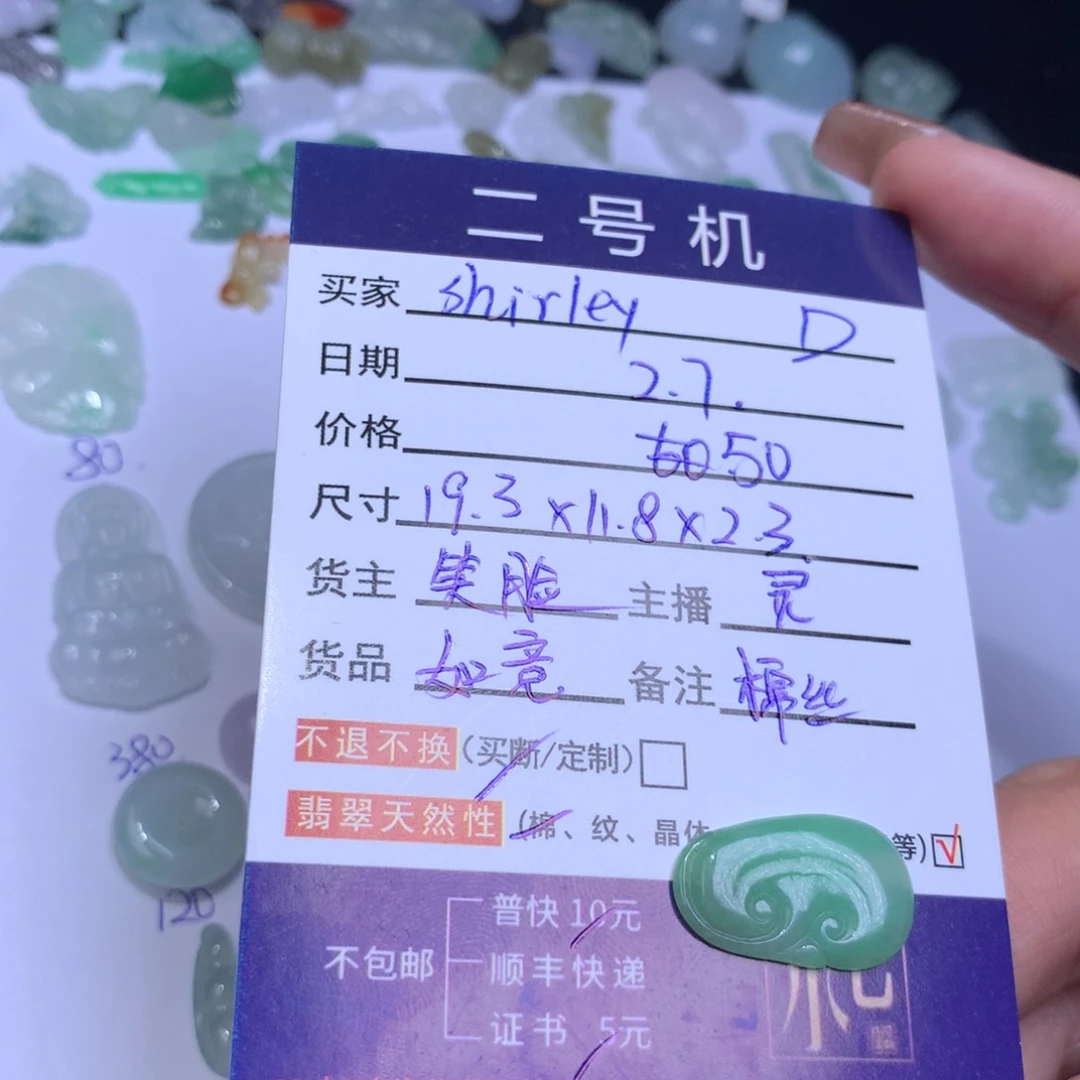 二号机
买家 shirley D
日期 2.7.
价格 50
尺寸 19.3x11.8x2.3
货主 脸 主播 灵
货品 如意 备注 棉丝
不退不换(买断/定制)
翡翠天然性(棉、纹、晶体 等) √
普快10元
不包邮 顺丰快递
证书 5元
80
380
120